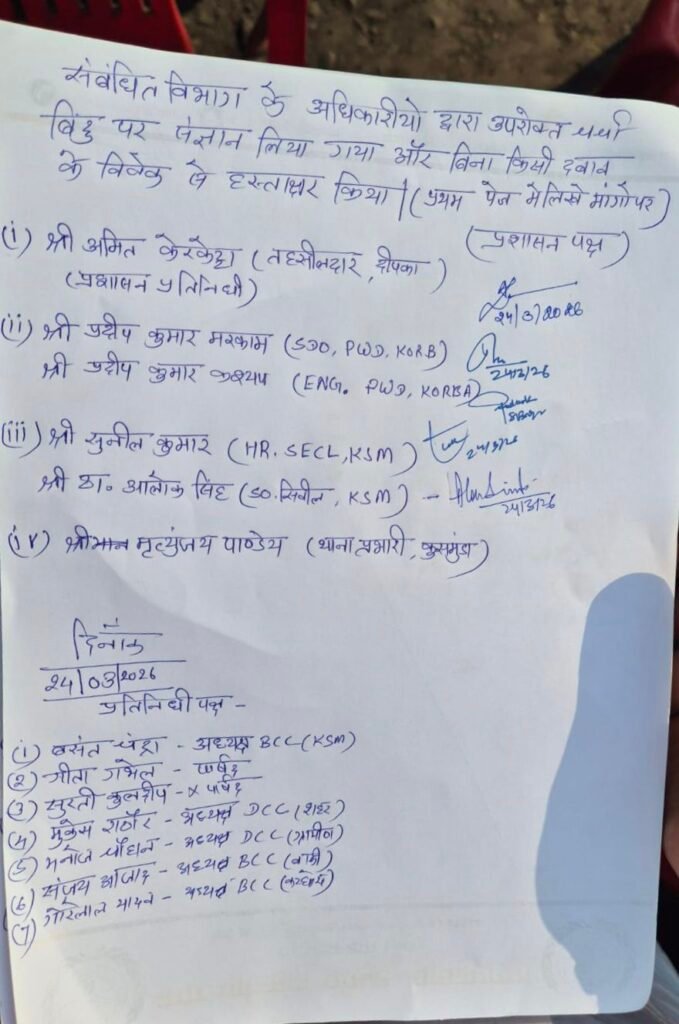 संबंधित विभाग के अधिकारीयो द्वारा उपरोक्त चर्चा
बिंदु पर संज्ञान लिया गया और बिना किसी दबाव
के विवेक से हस्ताक्षर किया | (प्रथम पेज मे लिखे मांगो पर)
(प्रशासन पक्ष)
(i) श्री अमित केरकेट्टा (तहसीलदार, दीपका)
(प्रशासन प्रतिनिधी)
24/3/2026
(ii) श्री प्रदीप कुमार मरकाम (SDO, PWD, KORB)
24/3/26
श्री प्रदीप कुमार कश्यप (ENG. PWD, KORBA)
(iii) श्री सुनील कुमार (HR. SECL, KSM)
24/3/26
श्री डा. आलोक सिंह (SO. सिवील, KSM) -
24/3/26
(iv) श्रीमान मृत्युंजय पाण्डेय (थाना प्रभारी, कुसमुंडा)
दिनांक
24/03/2026
प्रतिनिधी पक्ष -
(1) बसंत चंद्रा - अध्यक्ष BCC (KSM)
(2) गीता गभेल - पार्षद
(3) सुरती कुलदीप - x पार्षद
(4) मुकेस राठौर - अध्यक्ष DCC (शहर)
(5) मनोज चौहान - अध्यक्ष DCC (ग्रामीण)
(6) संजय आजाद - अध्यक्ष BCC
(7) गोरेलाल यादव - अध्यक्ष BCC